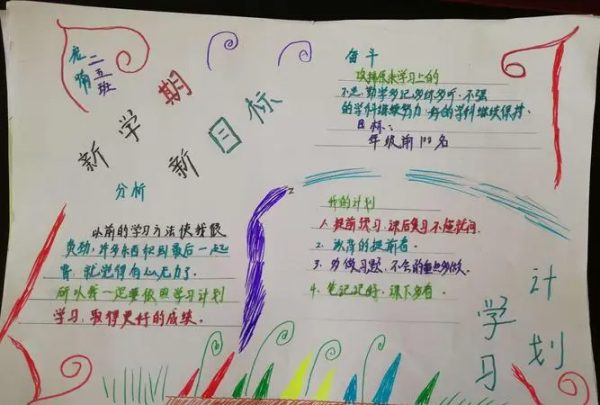 二五班
新学期
新目标
奋斗
改掉原来学习上的
不足,勤学多记多练多听,不强
的学科继续努力,好的学科继续保持.
目标:
年级前100名
分析
以前的学习方法使我很
费劲,许多东西积到最后一起
背,就觉得有心无力了.
所以我一定要依照学习计划
学习,取得更好的成绩.
我的计划
1.提前预习,课后复习不拖时间.
2.
3.多做习题,不会的重点多做.
4.笔记记好,课下多看.
学习
计划